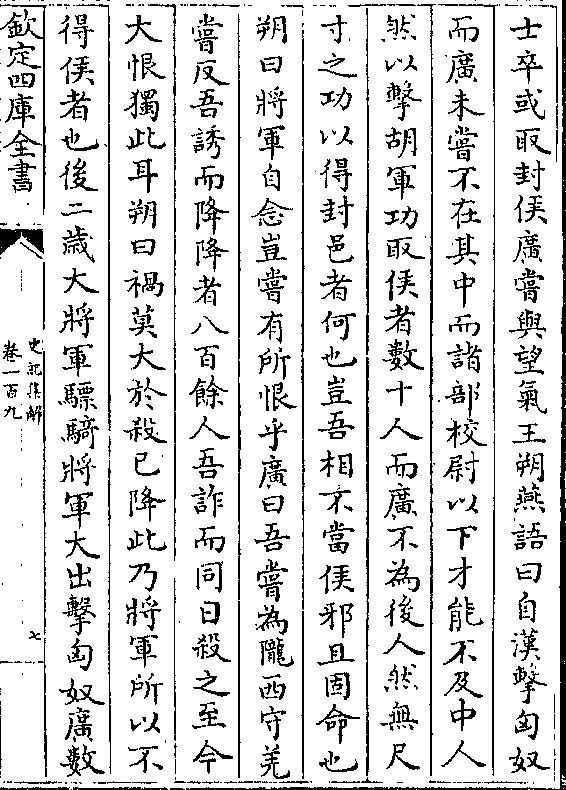 士卒或取封侯廣嘗與望氣王朔燕語曰自漢擊匈奴
而廣未嘗不在其中而諸部校尉以下才能不及中人
然以擊胡軍功取侯者數十人而廣不為後人然無尺
寸之功以得封邑者何也豈吾相不當侯邪且固命也
朔曰將軍自念豈嘗有所恨乎廣曰吾嘗為隴西守羌
嘗反吾誘而降降者八百餘人吾詐而同日殺之至今
大恨獨此耳朔曰禍莫大於殺已降此乃將軍所以不
得侯者也後二歲大將軍驃騎將軍大出擊匈奴廣數
欽定四庫全書
史記集解
卷一百九
七